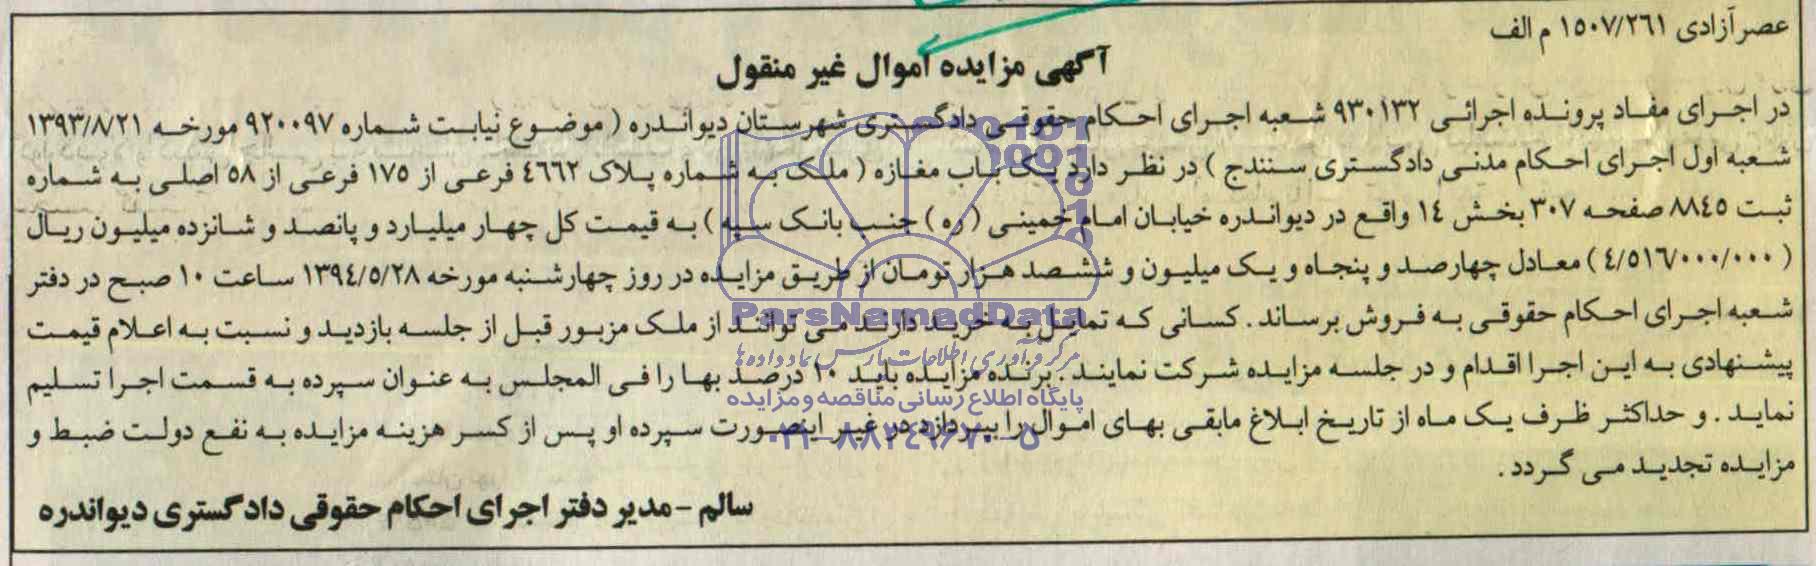 عصر آزادی ١٥٠٧/٢٦١ م الف
آگهی مزایده اموال غیر منقول
در اجرای مفاد پرونده اجرائی ٩٣٠١٣٢ شعبه اجرای احکام حقوقی دادگستری شهرستان دیواندره ( موضوع نیابت شماره ٩٢٠٠٩٧ مورخه ١٣٩٣/٨/٢١
شعبه اول اجرای احکام مدنی دادگستری سنندج ) در نظر دارد یک باب مغازه ( ملک به شماره پلاک ٤٦٦٢ فرعی از ١٧٥ فرعی از ٥٨ اصلی به شماره
ثبت ٨٨٤٥ صفحه ٣٠٧ بخش ١٤ واقع در دیواندره خیابان امام خمینی ( ره ) جنب بانک سپه ) به قیمت کل چهار میلیارد و پانصد و شانزده میلیون ریال
( ٤/٥١٦/٠٠٠/٠٠٠ ) معادل چهارصد و پنجاه و یک میلیون و ششصد هزار تومان از طریق مزایده در روز چهارشنبه مورخه ١٣٩٤/٥/٢٨ ساعت ١٠ صبح در دفتر
شعبه اجرای احکام حقوقی به فروش برساند . کسانی که تمایل به خرید دارند می توانند از ملک مزبور قبل از جلسه بازدید و نسبت به اعلام قیمت
پیشنهادی به این اجرا اقدام و در جلسه مزایده شرکت نمایند . برنده مزایده باید ١٠ درصد بها را فی المجلس به عنوان سپرده به قسمت اجرا تسلیم
نماید . و حداکثر ظرف یک ماه از تاریخ ابلاغ مابقی بهای اموال را بپردازد در غیر اینصورت سپرده او پس از کسر هزینه مزایده به نفع دولت ضبط و
مزایده تجدید می گردد .
سالم - مدیر دفتر اجرای احکام حقوقی دادگستری دیواندره
ParsNamadData
مرکز فرآوری اطلاعات پارس نماد داده ها
پایگاه اطلاع رسانی مناقصه و مزایده
٠٢١-٨٨٣٤٩٦٧٠-٥